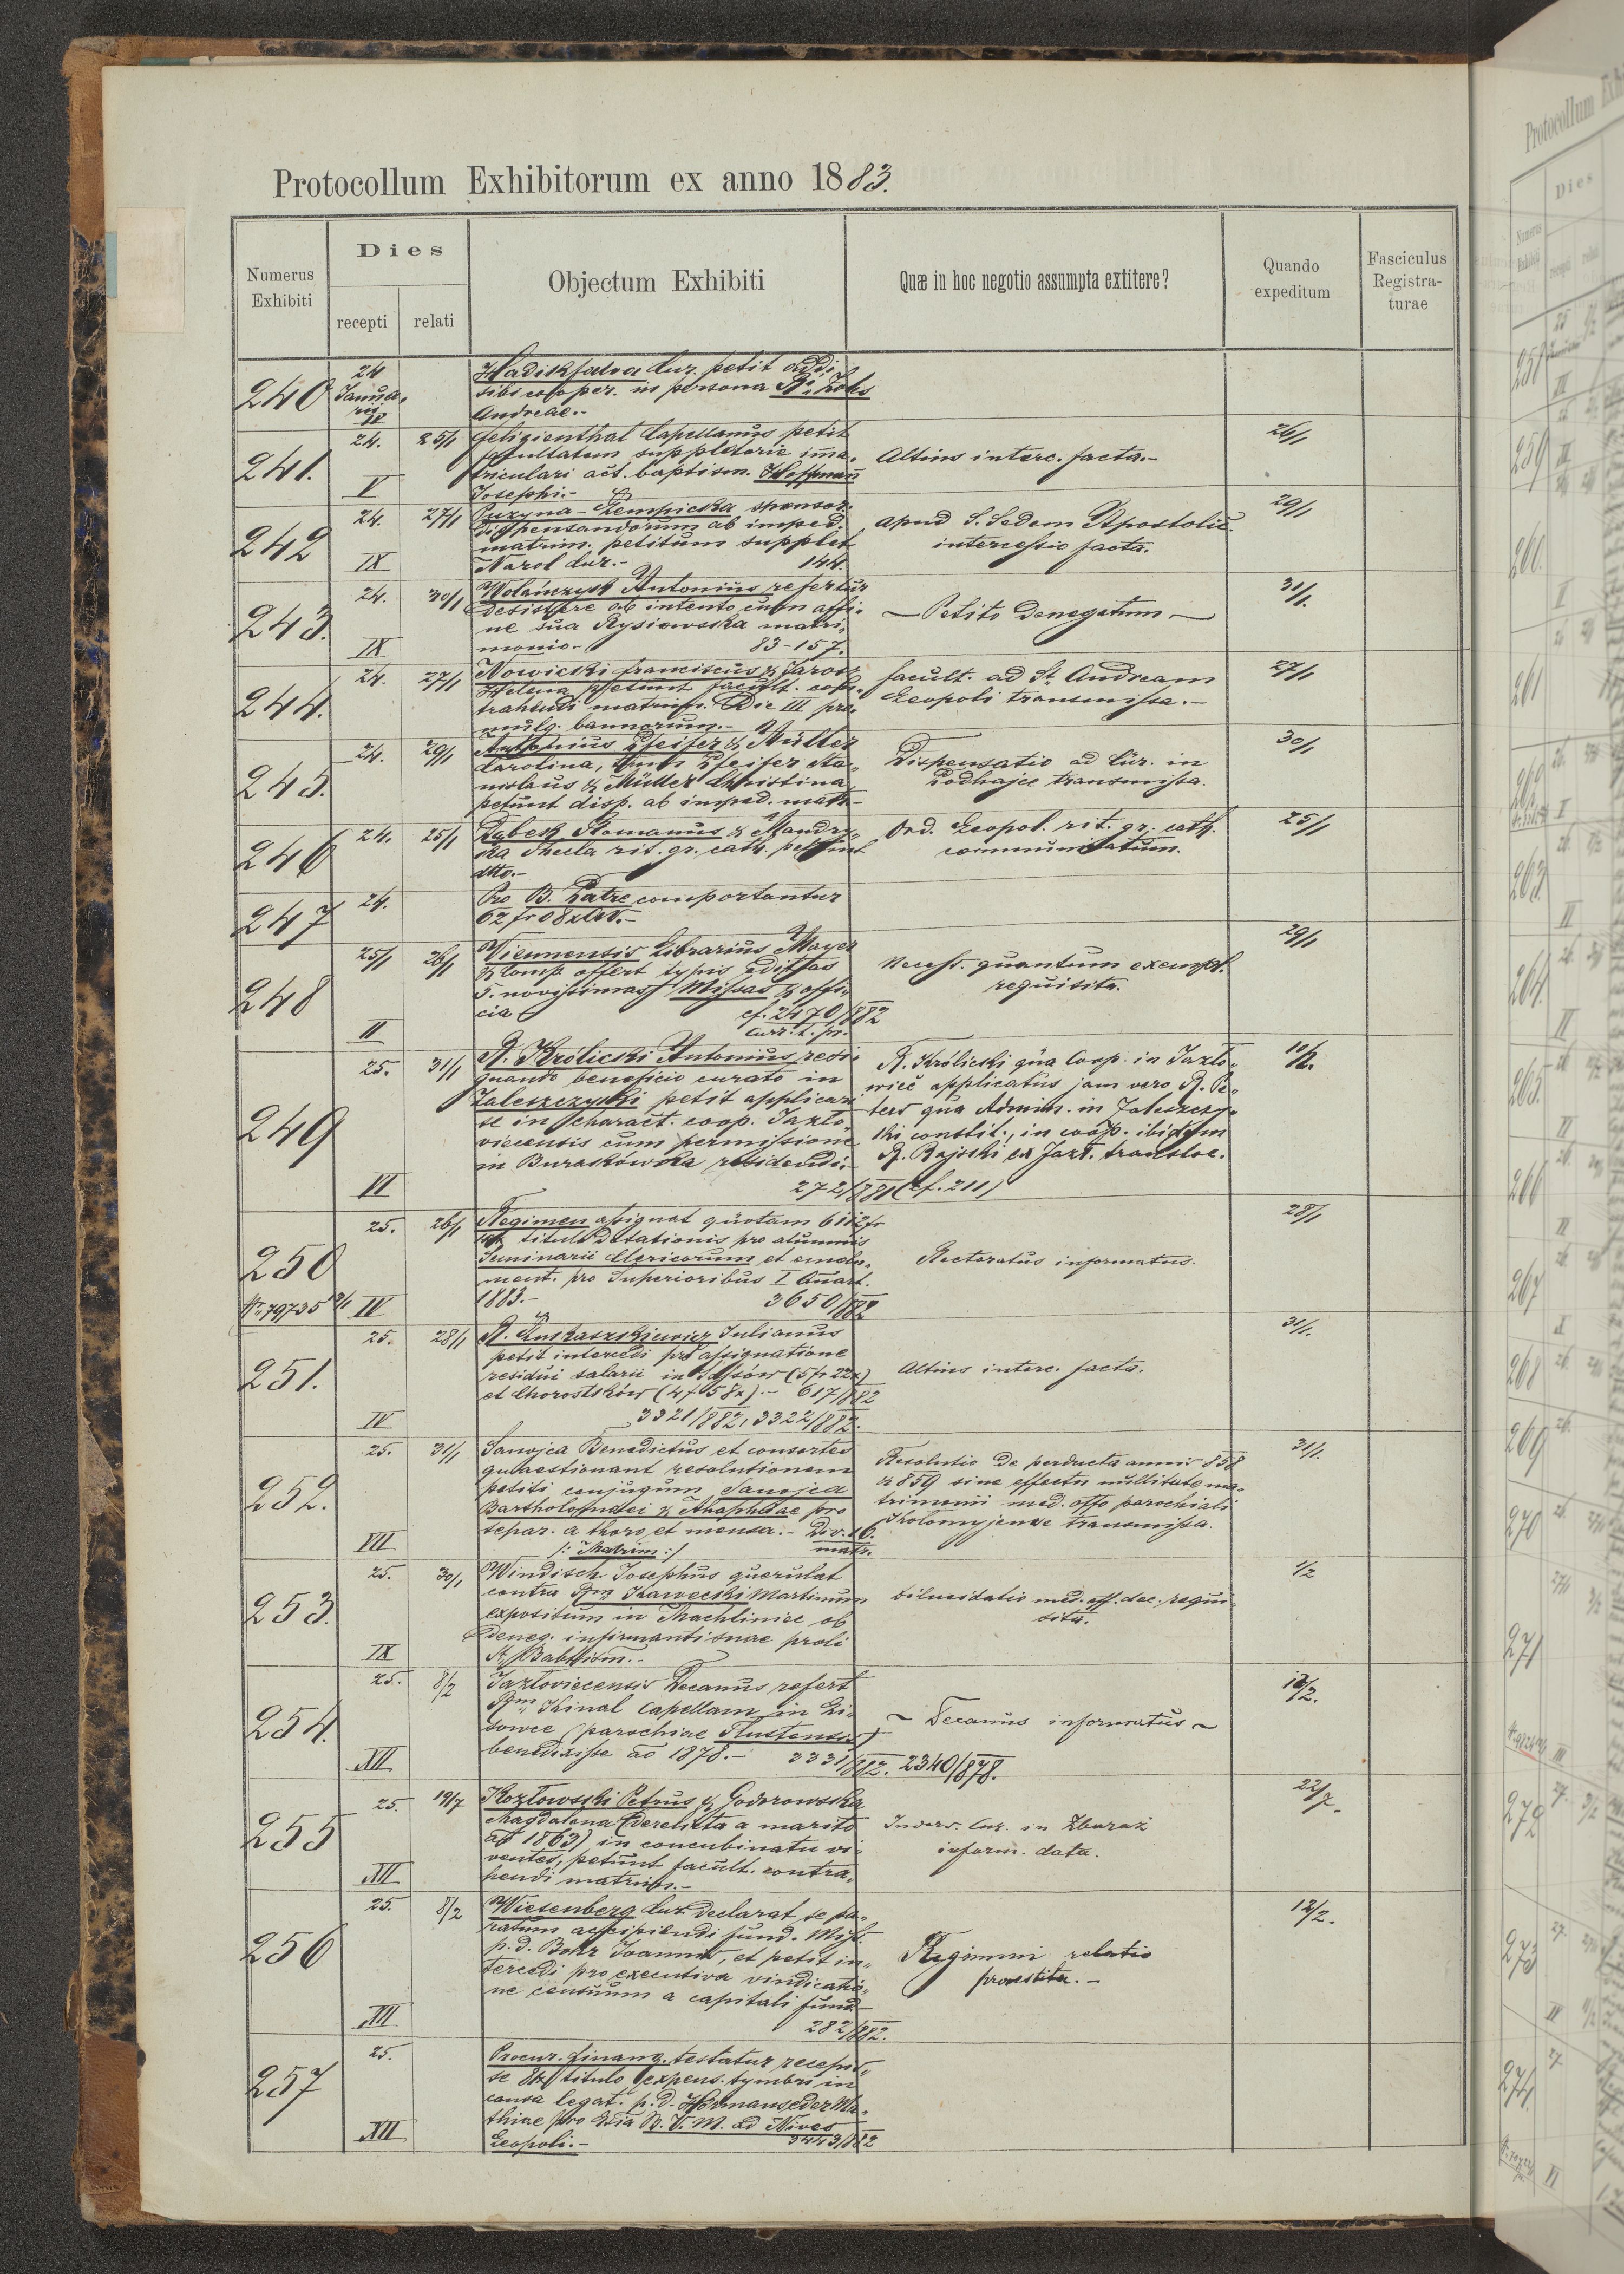 Protocollum Exhibitorum ex anno 1883.
Numerus Exhibiti
Dies
recepti
relati
Objectum Exhibiti
Quæ in hoc negotio assumpta extitere?
Quando expeditum
Fasciculus Registraturae
240
24 Januarii
IV
Hadikfalva Cur. petit addi
sibi cooper. in persona Ri
Andreae.-
241.
24.
25/1
V
Capellanus petit
facultatem suppletorie ima-
triculari act. baptism. Hoffmann
Josephi.-
Altius interc. facta.-
26/1
242
24.
27/1
IX
Puzyna-Zempicka sponsor.
dispensandorum ab imped.
matrim. petitum supplet
Narol Cur.- 144.
apud S. Sedem Apostolic.
intercessio facta.
29/1
243.
24.
30/1
IX
Antonius refertur
desistere ab intento cum affi-
ne sua Rysiowska matri-
monio.- 83-157.
- Petito denegatum -
31/1.
244.
24.
27/1
Nowicki Franciscus & Jarosz
Helena petunt facult. con-
trahendi matrim. Die III pro-
mulg. bannorum.-
facult. ad St. Andream
Leopoli transmissa.-
27/1
245.
24.
29/1
Antonius Pfeifer & Müller
Carolina, Pfeifer Sta-
nislaus & Müller Christina
petunt disp. ab imped. matr.-
Dispensatio ad Cur. in
Podhajce transmissa.
30/1
246
24.
25/1
Romanus & Mandry-
ka Thecla rit. gr. cath. petunt
dtto.-
Ord. Leopol. rit. gr. cath.
communicatum.
25/1
247
24.
Pro B. Patre comportantur
62 fr 08 x
248
25/1
26/1
II
Viennensis Librarius Mayer
& Comp. offert typis editas
5. novissimas Missas & offi-
cia cf. 2470/882
Curr. t. pr.
Necess. quantum exempl.
requisita.
29/1
249
25.
31/1
VI
R. Królicki Antonius resi-
gnando beneficio curato in
Zaleszczyki petit applicari
se in charact. coop. Jazło-
viecensis cum permissione
in Burakówka residendi.-
272/881 (cf. 211)
R. Królicki qua Coop. in Jazło-
wiec applicatus jam vero R. Pe-
ters qua Admin. in Zaleszczy-
ki constit., in coop. ibidem
R. Rajski ex Jazł. transloc.
10/2.
250
Nr. 79735
25.
26/1
IV
Regimen assignat quotam 6112 fr
titulo dotationis pro alumnis
Seminarii Clericorum et emolu-
ment. pro Superioribus I Quart.
1883.- 3650/882
Rectoratus informatus.
28/1
251.
25.
28/1
IV
R. Łukaszkiewicz Julianus
petit intercedi pro assignatione
residui salarii in Sassów (5 fr 22x)
et Chorostków (4 f 58x).- 617/882
3321/882, 3322/882.
Altius interc. facta.
31/1.
252.
25.
31/1
VII
Sanojca Benedictus et consortes
quaestionant resolutionem
petiti conjugum Sanojca
Bartholomaei & Agaphiae pro
separ. a thoro et mensa.- Div. 16.
/: Matrim :/ matr.
Resolutio de perducta annis 858
& 859 sine effectu nullitate ma-
trimonii med. offo parochiali
Kolomyjense transmissa.
31/1.
253.
25.
30/1
IX
Windisch Josephus querulat
contra Rm Kawecki Martinum
expositum in Machliniec ob
deneg. infirmanti suae proli
St. Babtism.-
Dilucidatio med. off. dec. requi-
sita.
1/2
254.
25.
8/2
XII
Jazloviecensis Decanus refert
Rm Kinal capellam in Li-
sowce (parochiae Tlustensis)
benedixisse ao 1878.- 3331/882. 2340/878.
~ Decanus informatus ~
12/2.
255
25.
19/7
XII
Kozłowski Petrus & Godorowska
Magdalena (derelicta a marito
ab 1863) in concubinatu vi-
ventes, petunt facult. contra-
hendi matrim.-
Indors. Cur. in Zbaraż
inform. data.
22/7.
256
25.
8/2
XII
Wiesenberg Cur. declarat se pa-
ratum accipiendi fund. Miss.
p. d. Bohr Joannis, et petit in-
tercedi pro executiva vindicatio-
ne censuum a capitali fund.
282/882.
Regimini relatio
praestita.-
12/2.
257
25.
XII
Procur. finanz. testatur recepis-
se titulo expens. tymbri in
causa legat. p. d. Hörmanseder Ma-
thiae pro Ecclia B. V. M. ad Nives
Leopoli.- 3443/882
Protocollum Exhi
Dies